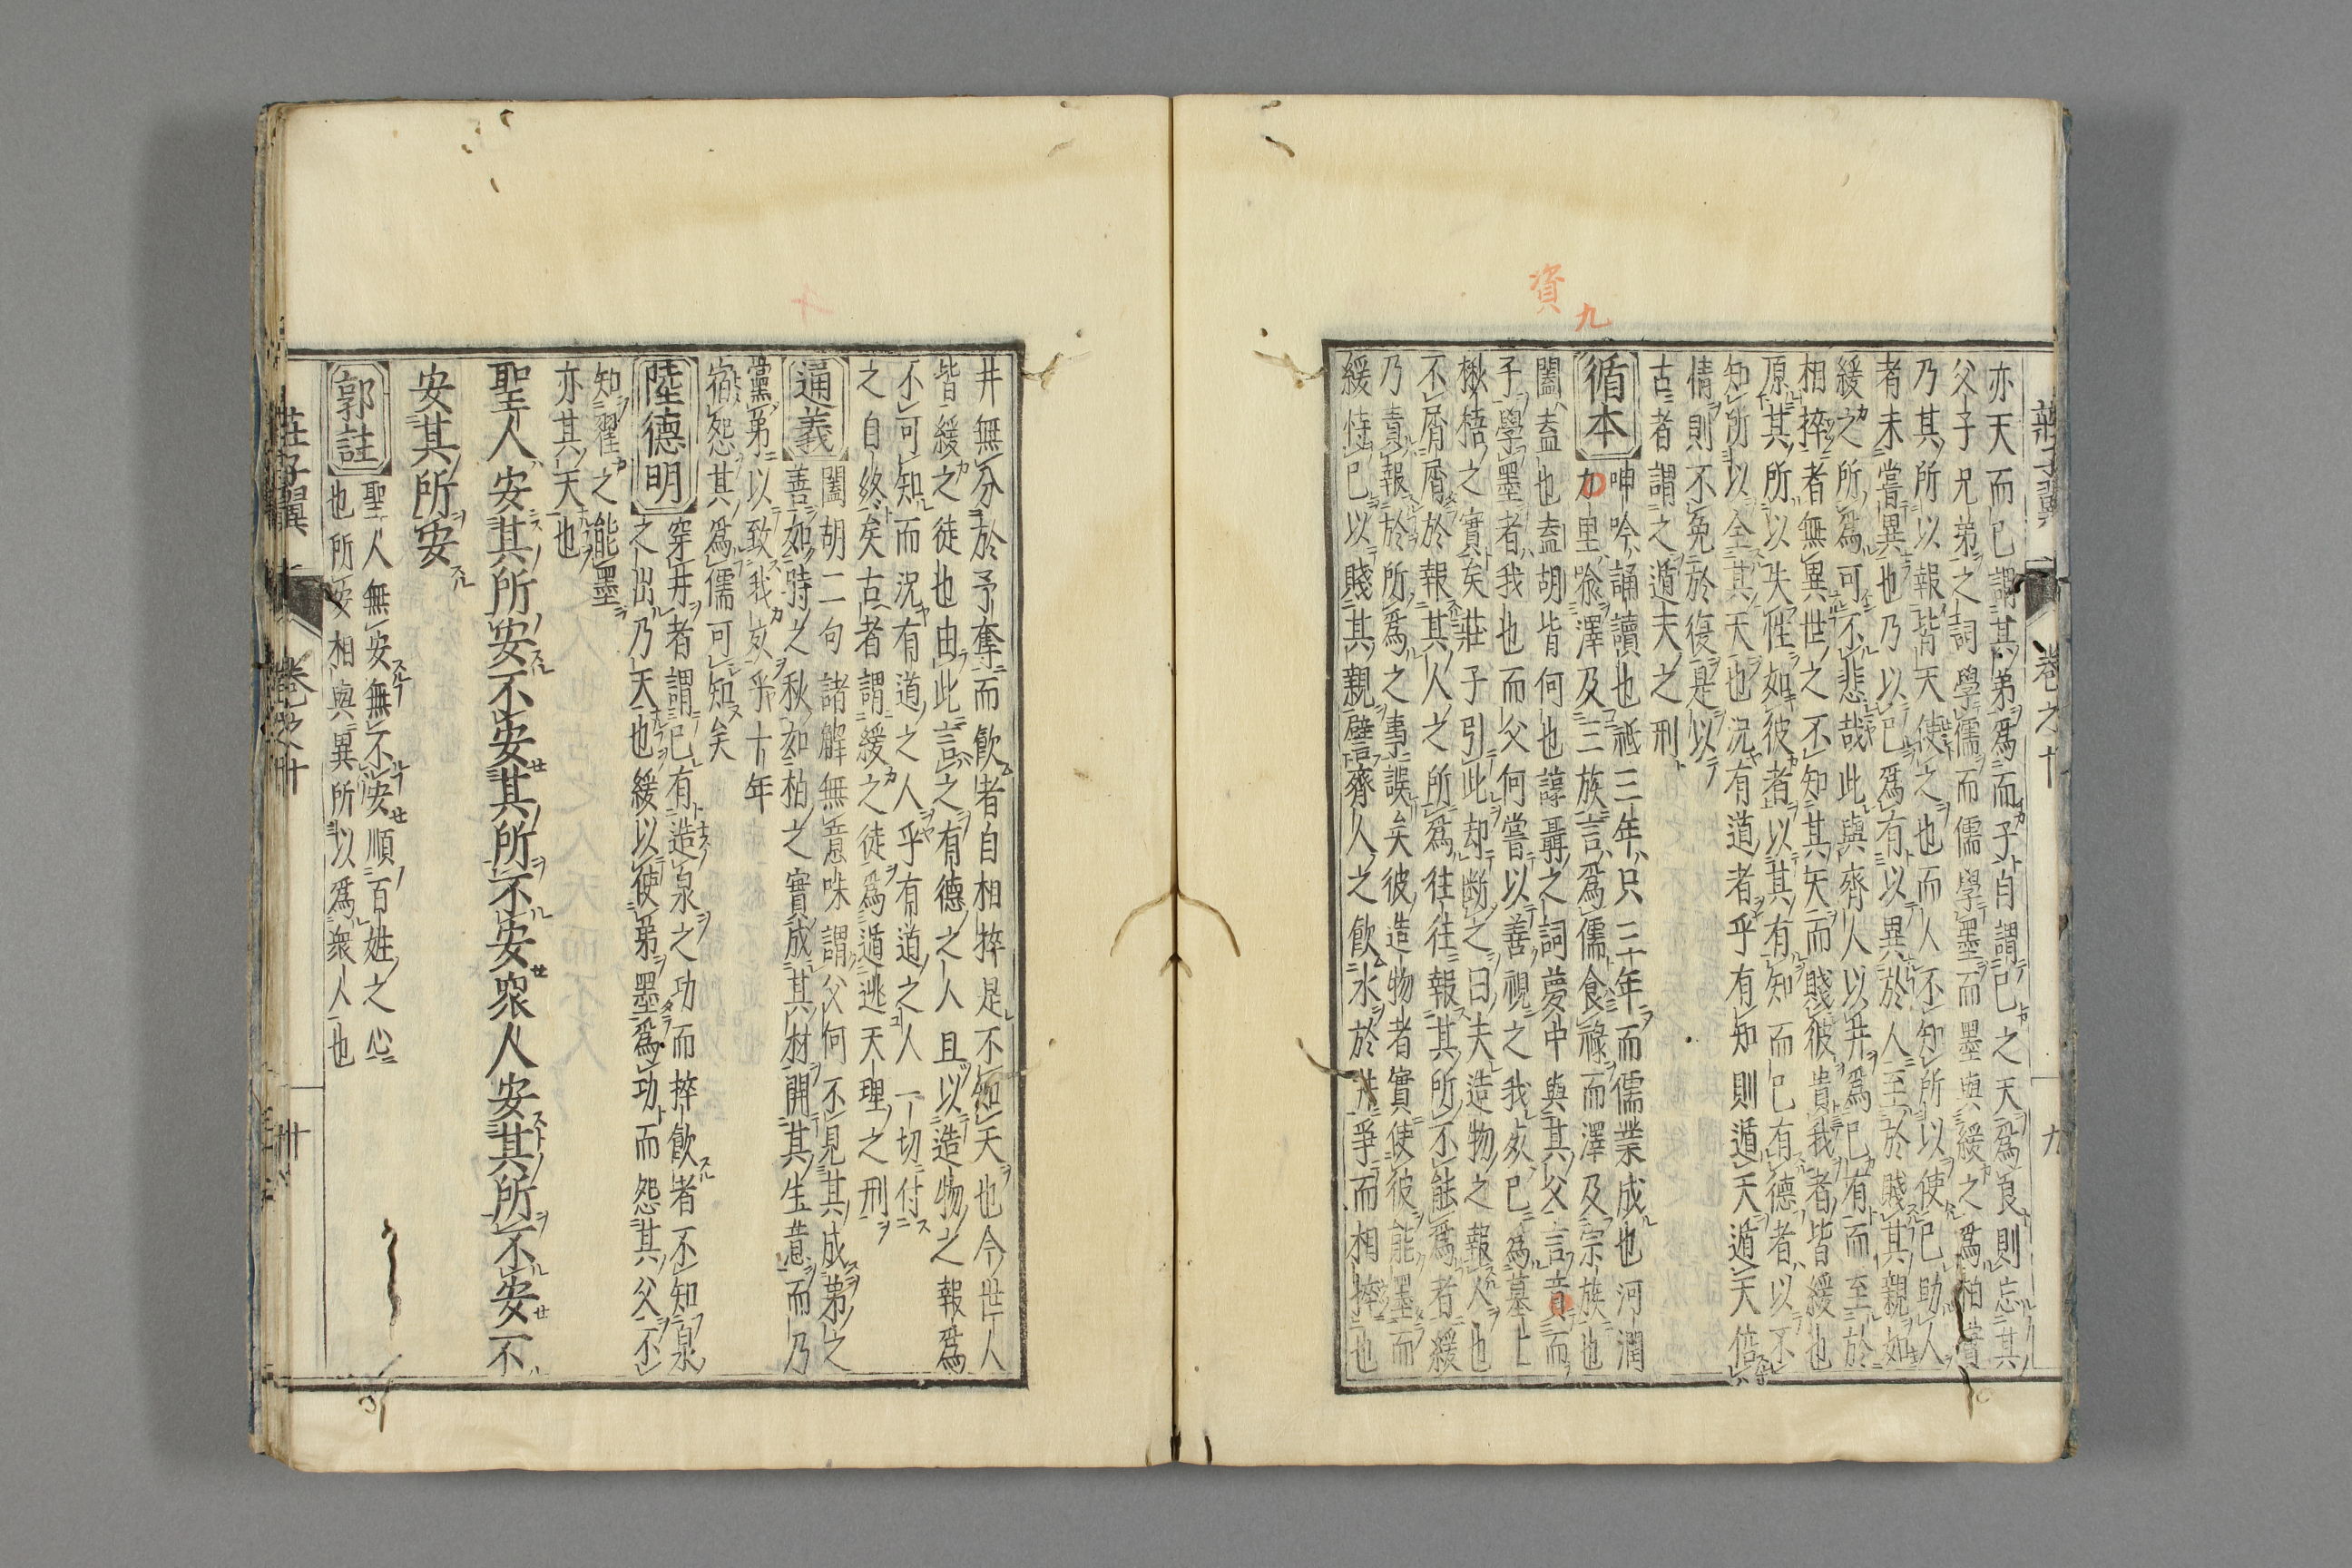 莊子翼 卷之十 九
亦天而已謂其弟爲而子自謂己之天爲良則忘其
父子兄弟之詞學儒而儒學墨而墨與緩之爲柏嘗
乃其所以報皆天使之也而人不知所以使己助人
者未嘗異也乃以己爲有以異於人至於賤其親如
緩之所爲可不悲哉此與齊人以井爲己有而至於
相捽者無異世之不知其天而賤彼貴我者皆緩也
原其所以失性如彼者以其有知而已有德者以不
知所以全其天也況有道者乎有知則遁天遁天倍
情則不免於復是以
古者謂之遁天之刑
循本
呻吟誦讀也祗三年只三年而儒業成也河潤
九里喩澤及三族言爲儒食祿而澤及宗族也
闔盍也盍胡皆何也諄聶之詞夢中與其父言音而
子學墨者我也而父何嘗以善視之我亥已爲墓上
楸梧之實矣莊子引此却斷之曰夫造物之報人也
不屑屑於報其人之所爲往往報其所不能爲者緩
乃責報於所爲之事誤矣彼造物者實使彼能墨而
緩恃已以賤其親譬齊人之飮水於井爭而相捽也
井無分於予奪而飮者自相捽是不知天也今世人
皆緩之徒也由此言之有德之人且以造物之報爲
不可知而況有道之人乎有道之人一切付
之自終矣古者謂緩之徒爲遁逃天理之刑
通義
闔胡二句諸解無意味謂父何不見其成弟之
善如時之秋如柏之實成其材開其生意而乃
黨弟以致我亥乎十年
宿怨其爲儒可知矣
陸德明
穿井者謂己有造泉之功而捽飮者不知泉
之出乃天也緩以使弟墨爲功而怨其父不
知翟之能墨
亦其天也
聖人安其所安不安其所不安衆人安其所不安不
安其所安
郭註
聖人無安無不安順百姓之心
也所安相與異所以爲衆人也
莊子翼 卷之十 十
資
九